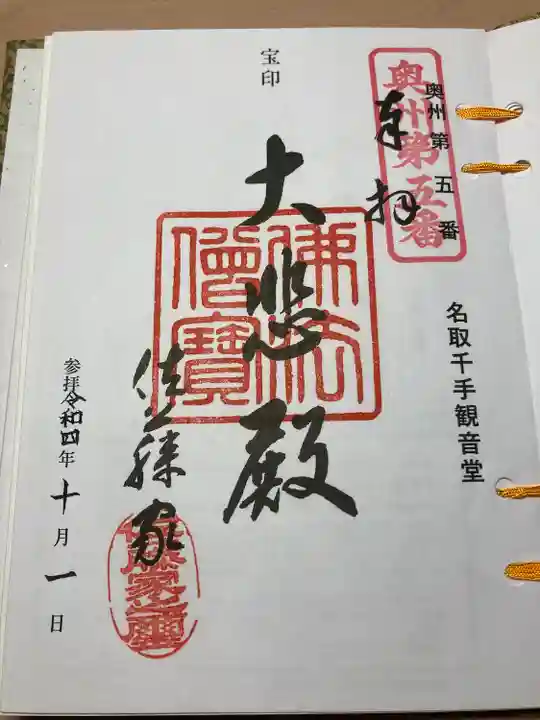 奥州第五番
奥州第五番
奉拝
名取千手観音堂
宝印
大悲殿
佛法僧寳
佐藤家
参拝令和四年十月一日